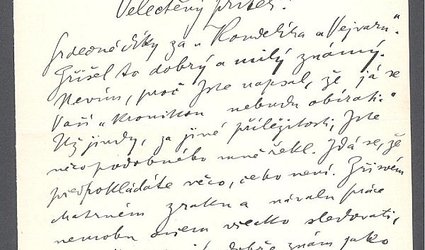 Velectěný příteli!
Srdečné díky za „Kondelíka a Vejvaru“.
Přišel to dobrý a milý známý.
Nevím, proč jste napsal, že já se
Vaší „Kronikou“ nebudu obírati.
Už jindy, za jiné příležitosti, jste
něco podobného mně řekl. Zdá se, že
předpokládáte něco, čeho není. Při svém
chatrném zraku a návalu práce
nemohu ovšem všecko sledovati,
dobře znám jako